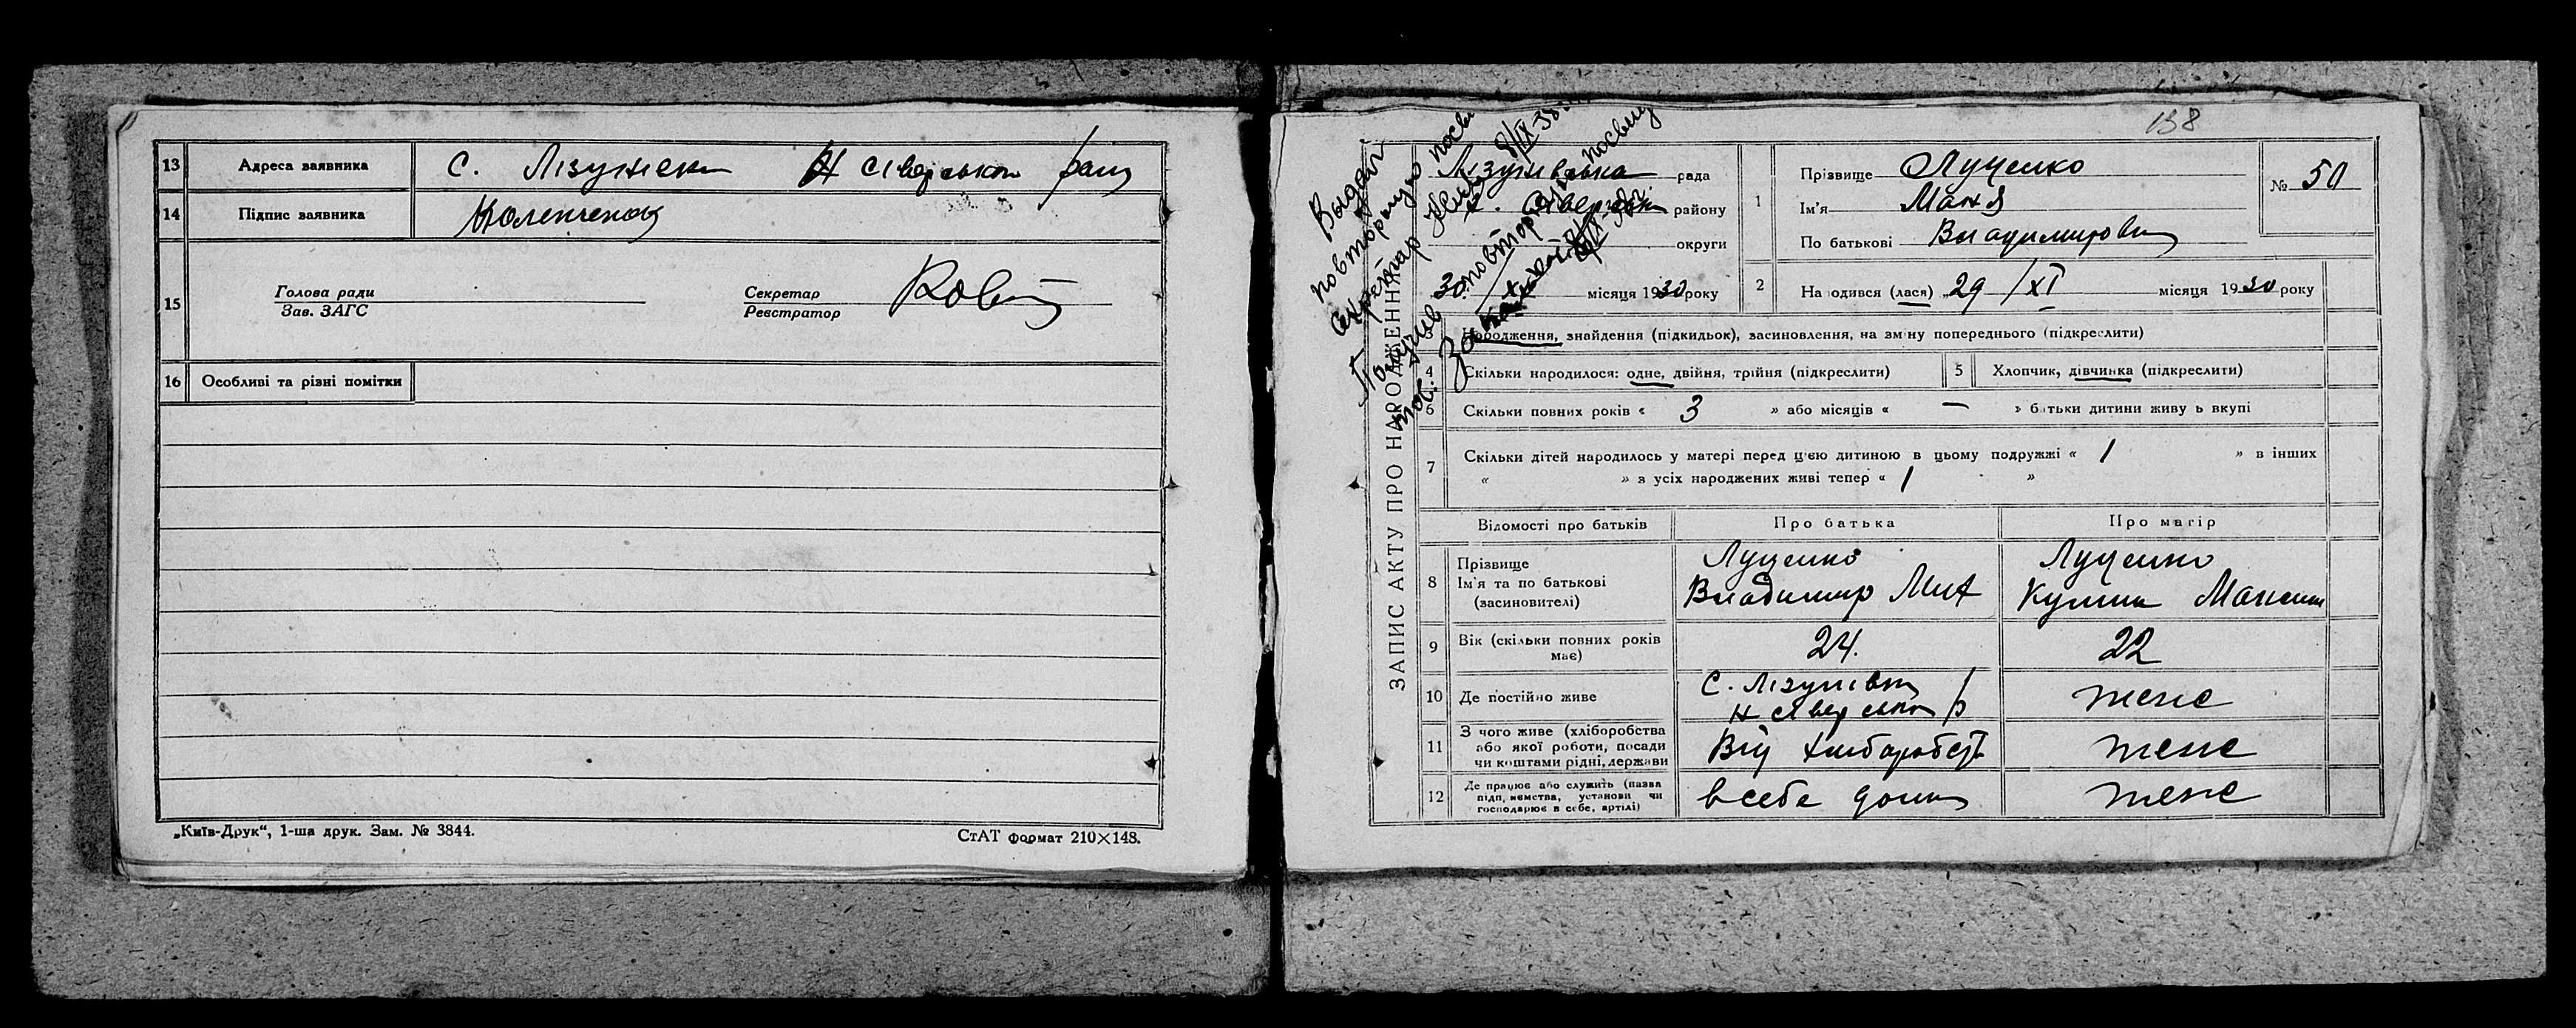 13 Адреса заявника с. Лізунівка Н сіверського рай
14 Підпис заявника
15 Голова ради
Зав. ЗАГС
Секретар
Реєстратор
16 Особливі та різні помітки
„Київ-Друк“, 1-ша друк. Зам. № 3844.
СтАТ формат 210×148.
158
Выдан
повторную
секретар
8/IX 38
Получив повторну
ЗАПИС АКТУ ПРО НАРОДЖЕННЯ
Лізунівська рада
району
округи
30 / XI місяця 1930 року
1 Прізвище Луценко
Ім'я Маня
По батькові Владимировн
№ 50
2 На одився (лася) „29 / XI місяця 1930 року
3 Народження, знайдення (підкидьок), засиновлення, на зміну попереднього (підкреслити)
4 Скільки народилося: одне, двійня, трійня (підкреслити)
5 Хлопчик, дівчинка (підкреслити)
6 Скільки повних років « 3 » або місяців « — » батьки дитини живу ь вкупі
7 Скільки дітей народилось у матері перед цією дитиною в цьому подружжі « 1 » в інших
« » з усіх народжених живі тепер « 1 »
Відомості про батьків Про батька Про матір
8 Прізвище Луценко Луценко
Ім'я та по батькові Владимир Мих
(засиновителі)
9 Вік (скільки повних років має) 24. 22
10 Де постійно живе с. Лізунівка теж
Н сіверського р
11 З чого живе (хліборобства
або якої роботи, посади
чи коштами рідні, держави теж
12 Де працює або служить (назва
підп, иємства, установи чи
господарює в себе, артілі) в себе дома теж